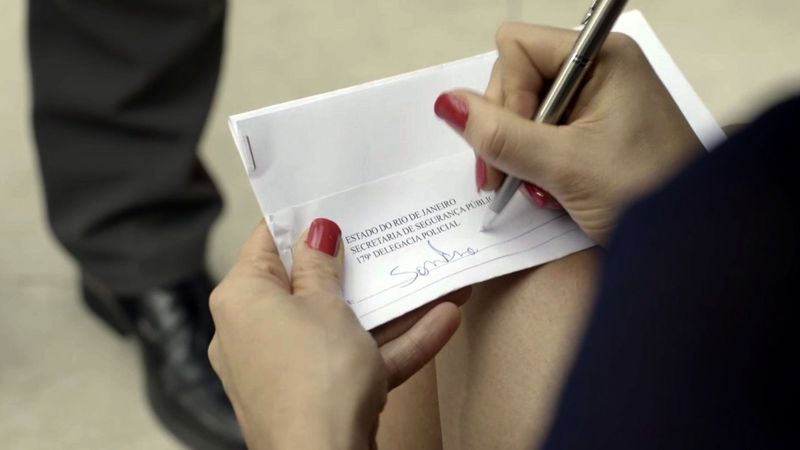 ESTADO DO RIO DE JANEIRO
SECRETARIA DE SEGURANÇA PÚBLI
179ª DELEGACIA POLICIAL
Sandra